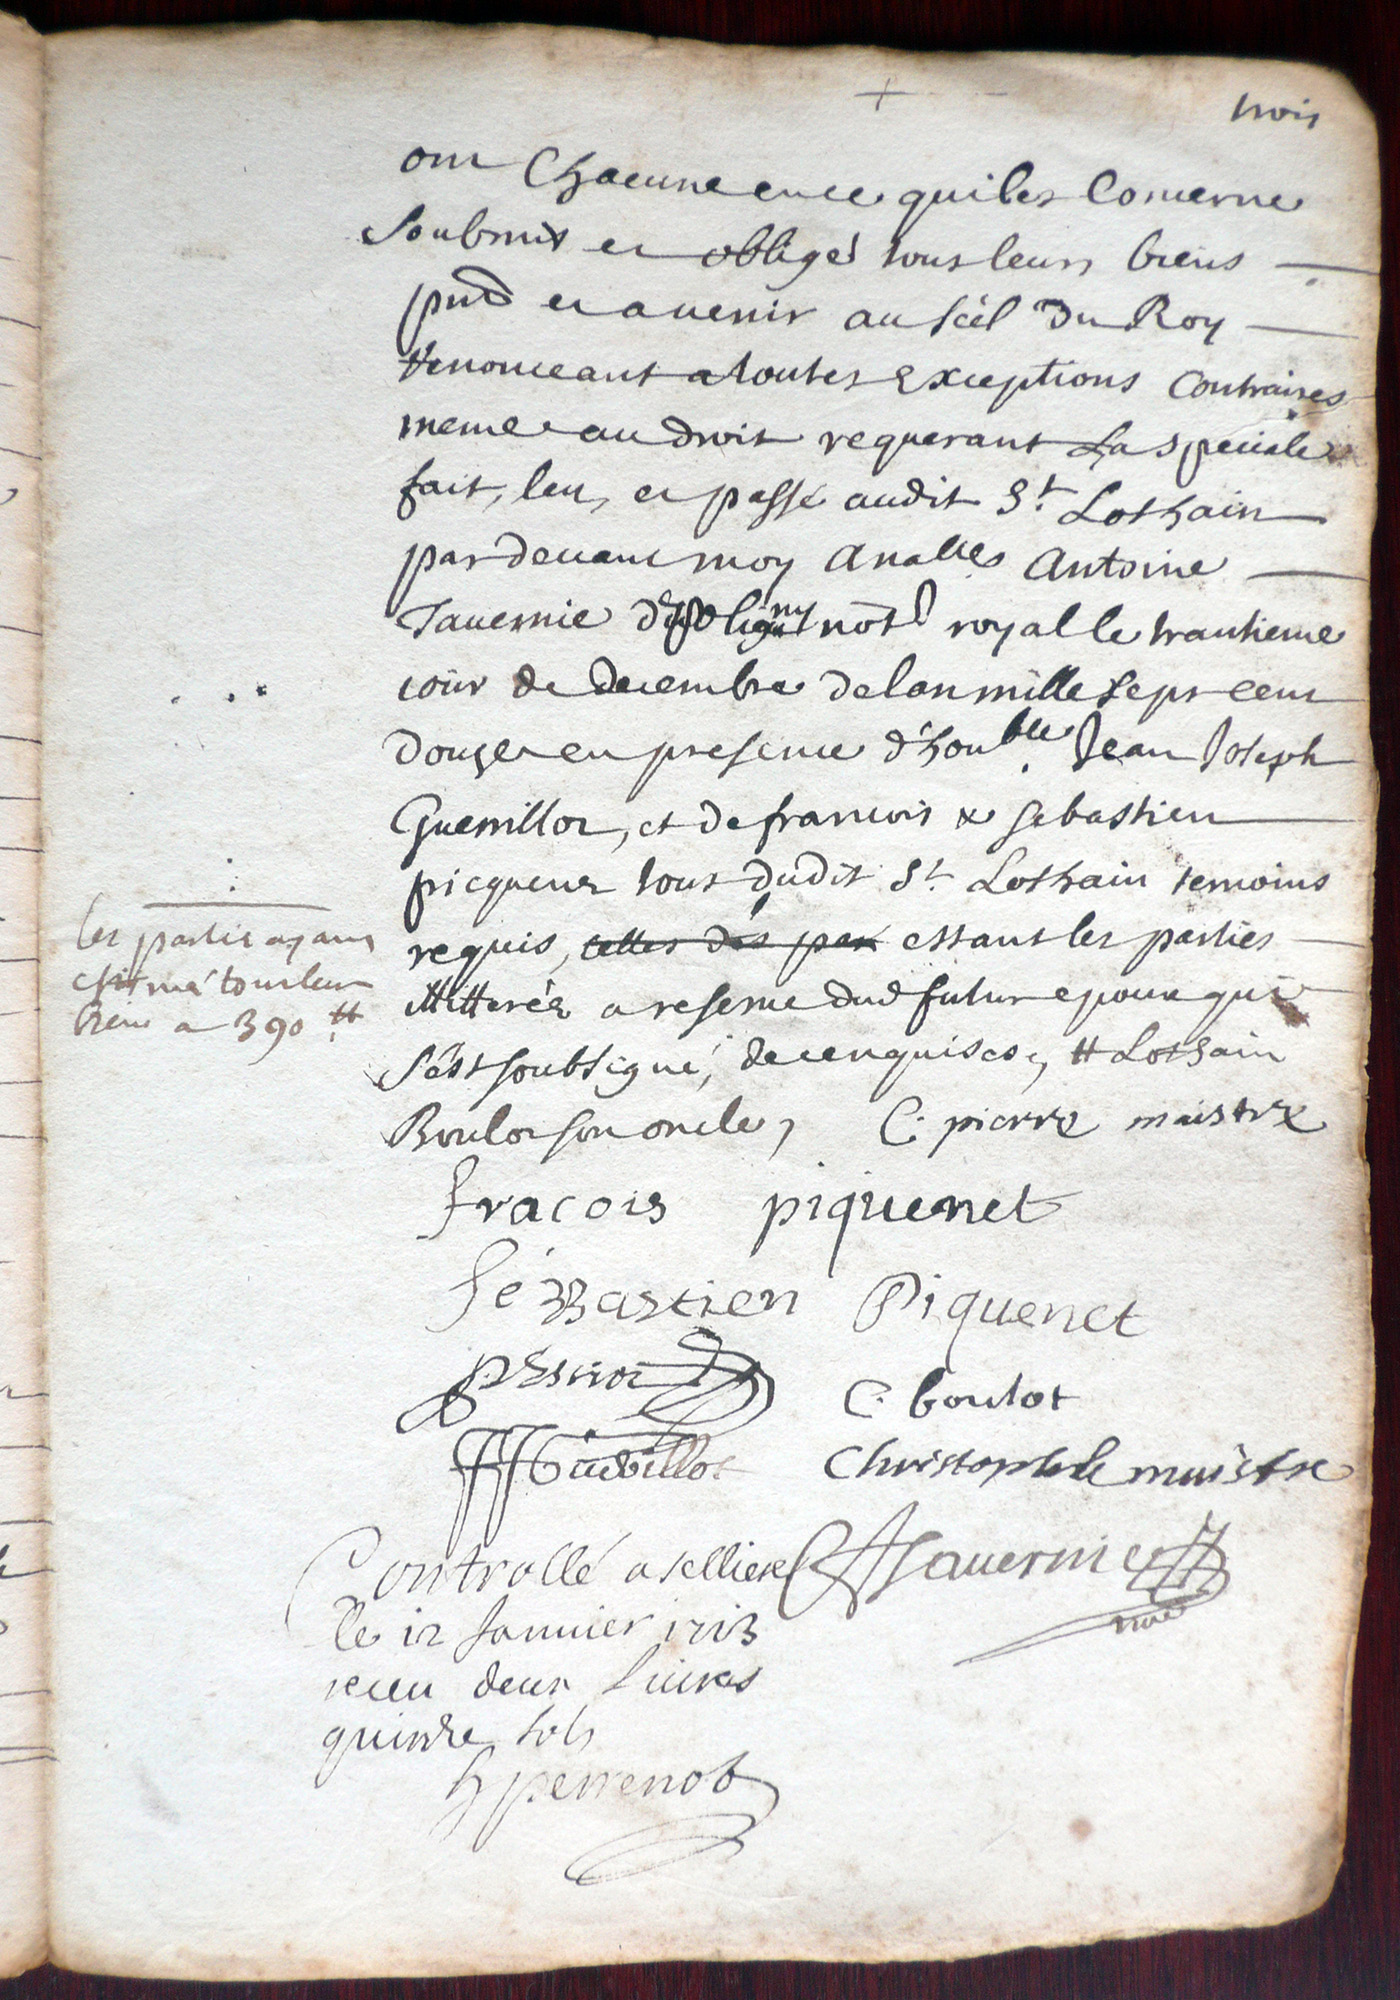 trois
ont Chacune en ce qui les Concerne
Soubmis et obligés tous leurs biens
pnts et a venir au scel du Roy
Renonceant a toutes exceptions contraires
meme au droit requerant La speciale
fait, leu, et passé audit St. Lothain
par devant moy Anatlle Antoine
Tavernie de poligny notre royal le trantieme
iour de decembre de lan mille sept cent
douze en presence d'honble Jean Joseph
Guerrillot, et de francois & sebastien
picquenet tous dudit St. Lothain temoins
requis, celles des par estant les parties
illitterés a reserve dud futur epoux qui
s'est soubsigné, de ce enquises, # Lothain
Boulot son oncle, C. pierre maistre
les partie ayant
estimé tout leur
biens a 390 #
fracois piquenet
sébastien Piquenet
C. boulot
JJGuerillot Christophle maistre
Controllé a sellieres Tavernier
notre
le 12 Janvier 1713
receu deux livres
quinze sols
perrenot